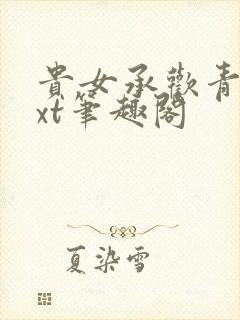 貴女承歡青
xt筆趣閣
夏染雪